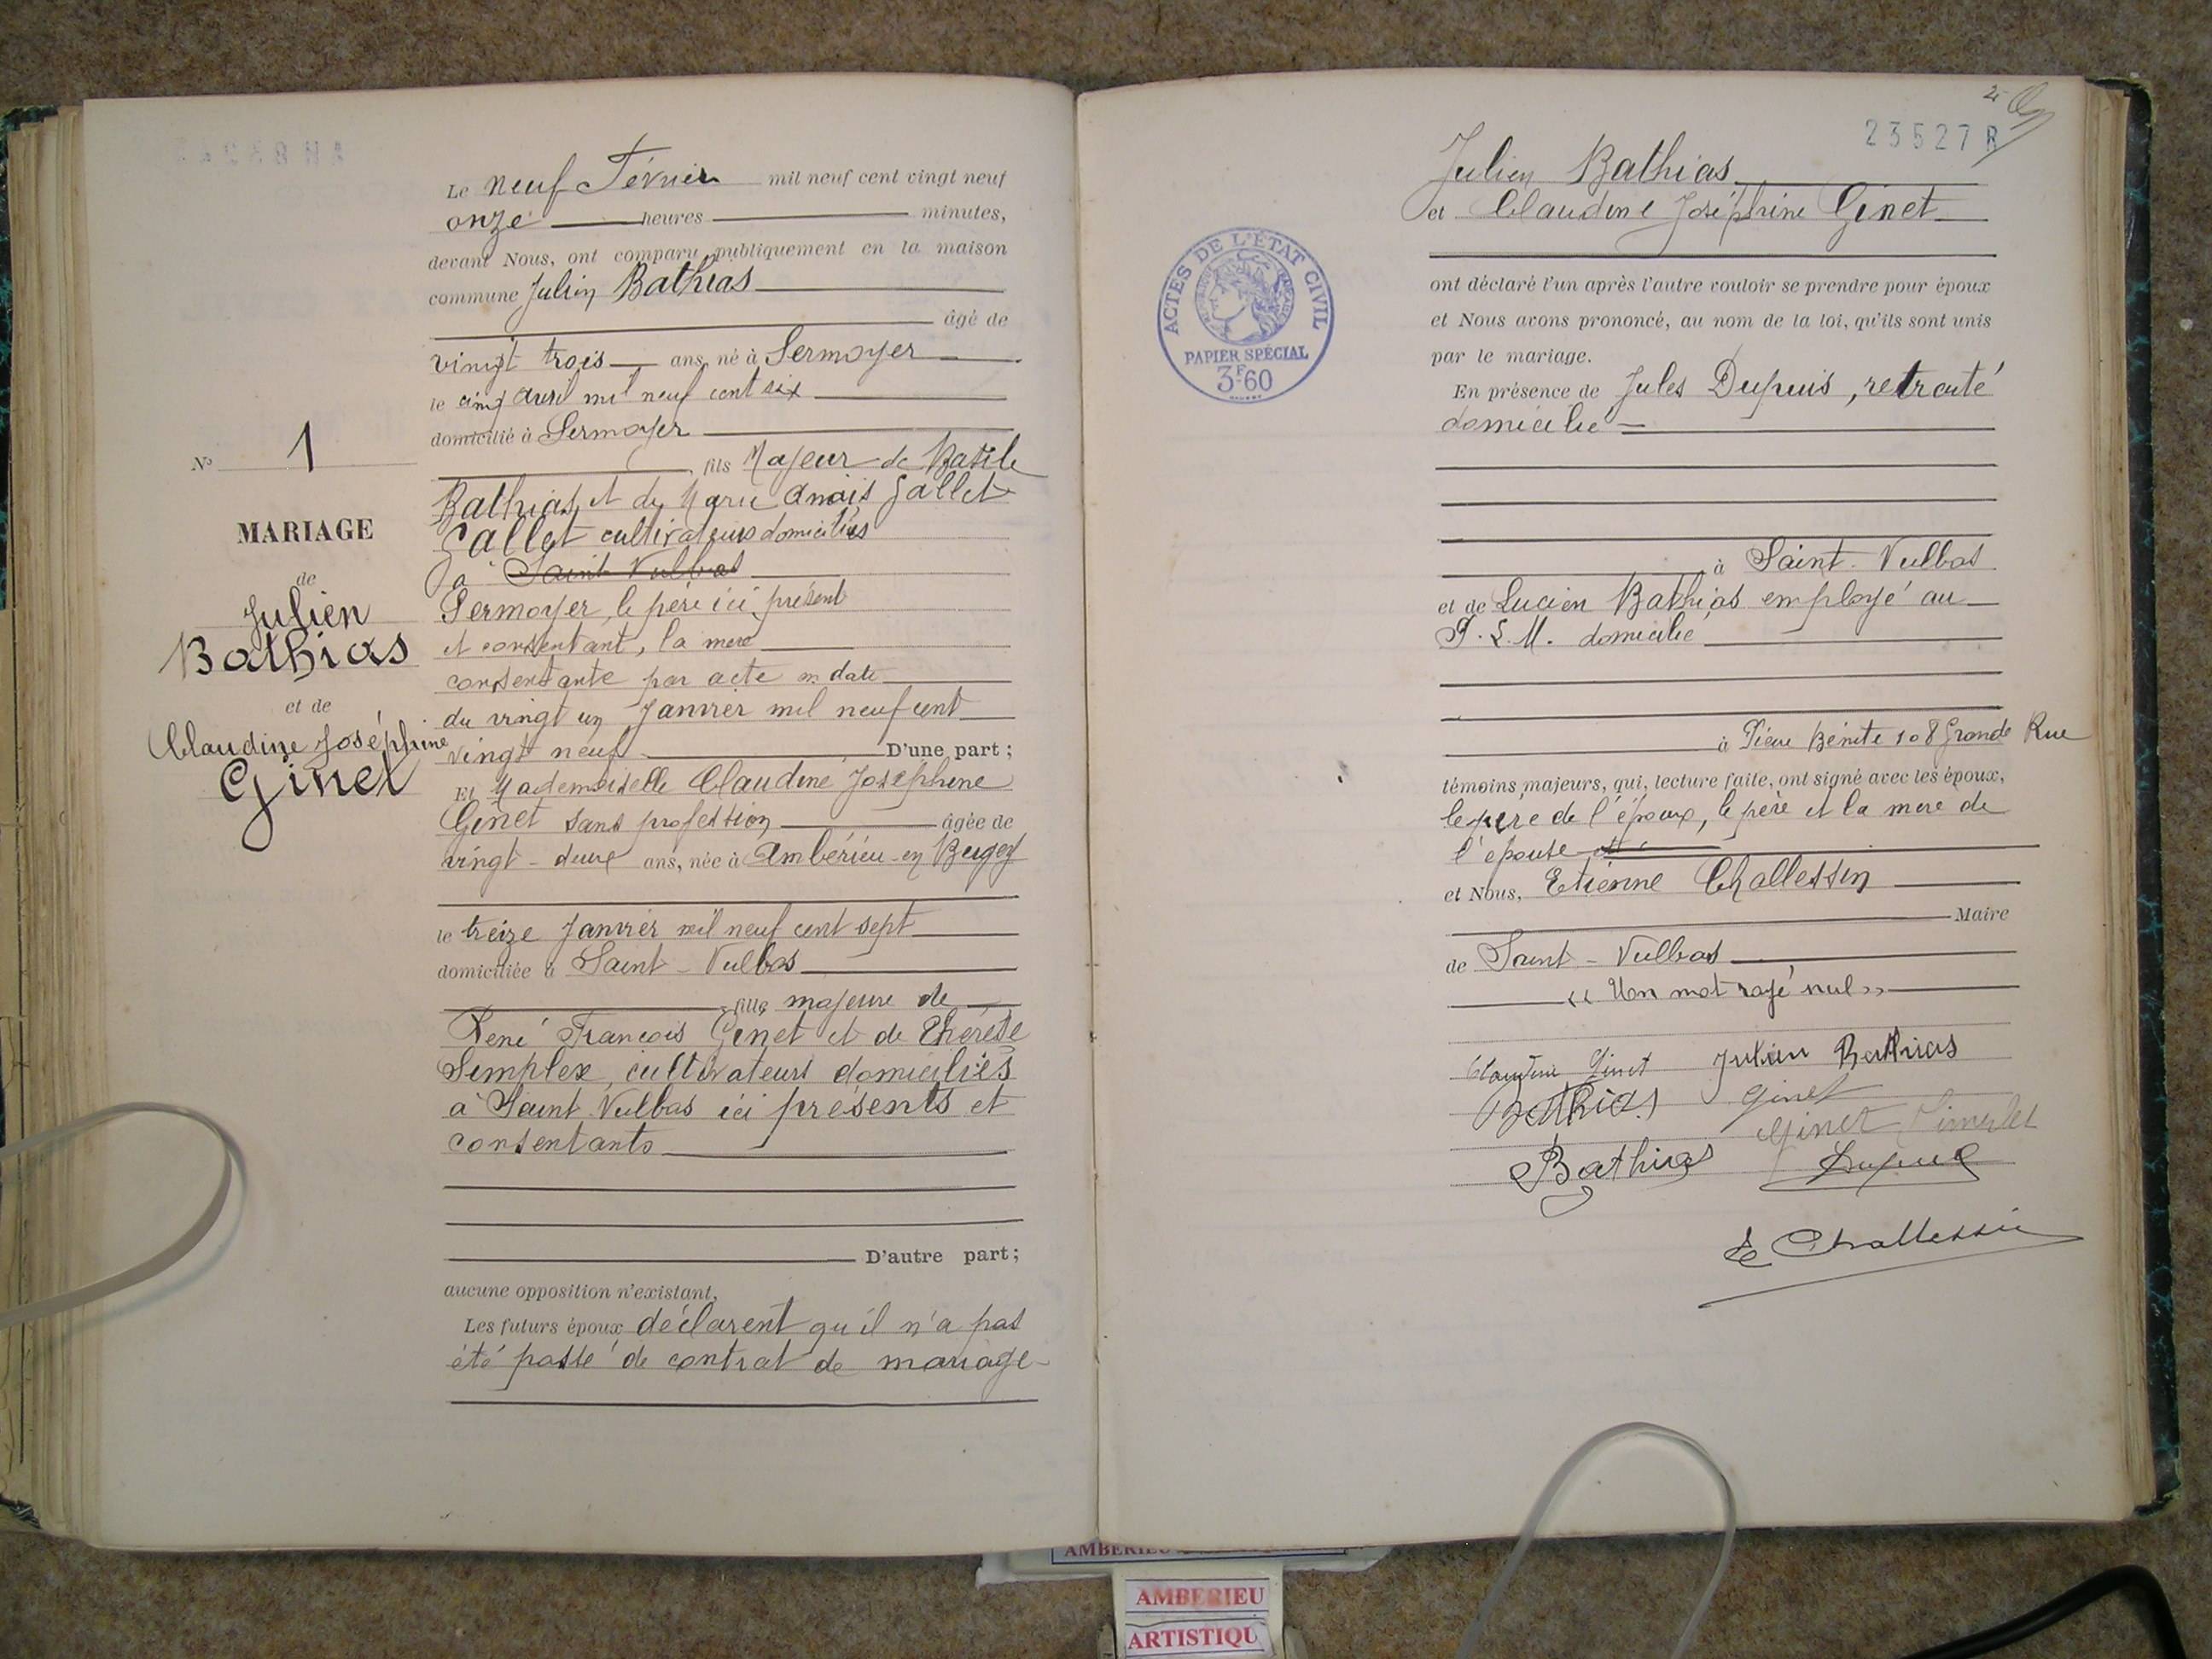 N° 1
MARIAGE
de
Julien
Bathias
et de
Claudine Joséphine
Ginet
Le neuf Février mil neuf cent vingt neuf
onze heures minutes,
devant Nous, ont comparu publiquement en la maison
commune Julien Bathias
âgé de
vingt trois ans, né à Sermoyer
le cinq avril mil neuf cent six
domicilié à Sermoyer
fils Majeur de Basile
Bathias et de Marie Anaïs Gallet
Gallet cultivateurs domiciliés
à Saint Vulbas
Sermoyer, le père ici présent
et consentant, la mère
consentante par acte en date
du vingt un Janvier mil neuf cent
vingt neuf D'une part;
Et Mademoiselle Claudine Joséphine
Ginet sans profession âgée de
vingt-deux ans, née à Ambérieu-en Bugey
le treize Janvier mil neuf cent sept
domiciliée à Saint-Vulbas
fille majeure de
René François Ginet et de Thérèse
Simplex, cultivateurs domiciliés
à Saint Vulbas ici présents et
consentants
D'autre part;
aucune opposition n'existant,
Les futurs époux déclarent qu'il n'a pas
été passé de contrat de mariage
23527 R
Julien Bathias
et Claudine Joséphine Ginet
ACTES DE L'ÉTAT CIVIL
PAPIER SPÉCIAL
3F60
ont déclaré l'un après l'autre vouloir se prendre pour époux
et Nous avons prononcé, au nom de la loi, qu'ils sont unis
par le mariage.
En présence de Jules Dupuis, retraité
domicilié
à Saint-Vulbas
et de Lucien Bathias employé au
P.L.M. domicilié
à Pierre Bénite 108 Grande Rue
témoins majeurs, qui, lecture faite, ont signé avec les époux,
le père de l'époux, le père et la mère de
l'épouse
et Nous, Etienne Challessin
Maire
de Saint-Vulbas
« Un mot rayé nul »
Claudine Ginet Julien Bathias
Bathias Ginet
Ginet Simplex
Bathias Dupuis
E Challessin
AMBERIEU
AMBERIEU
ARTISTIQU